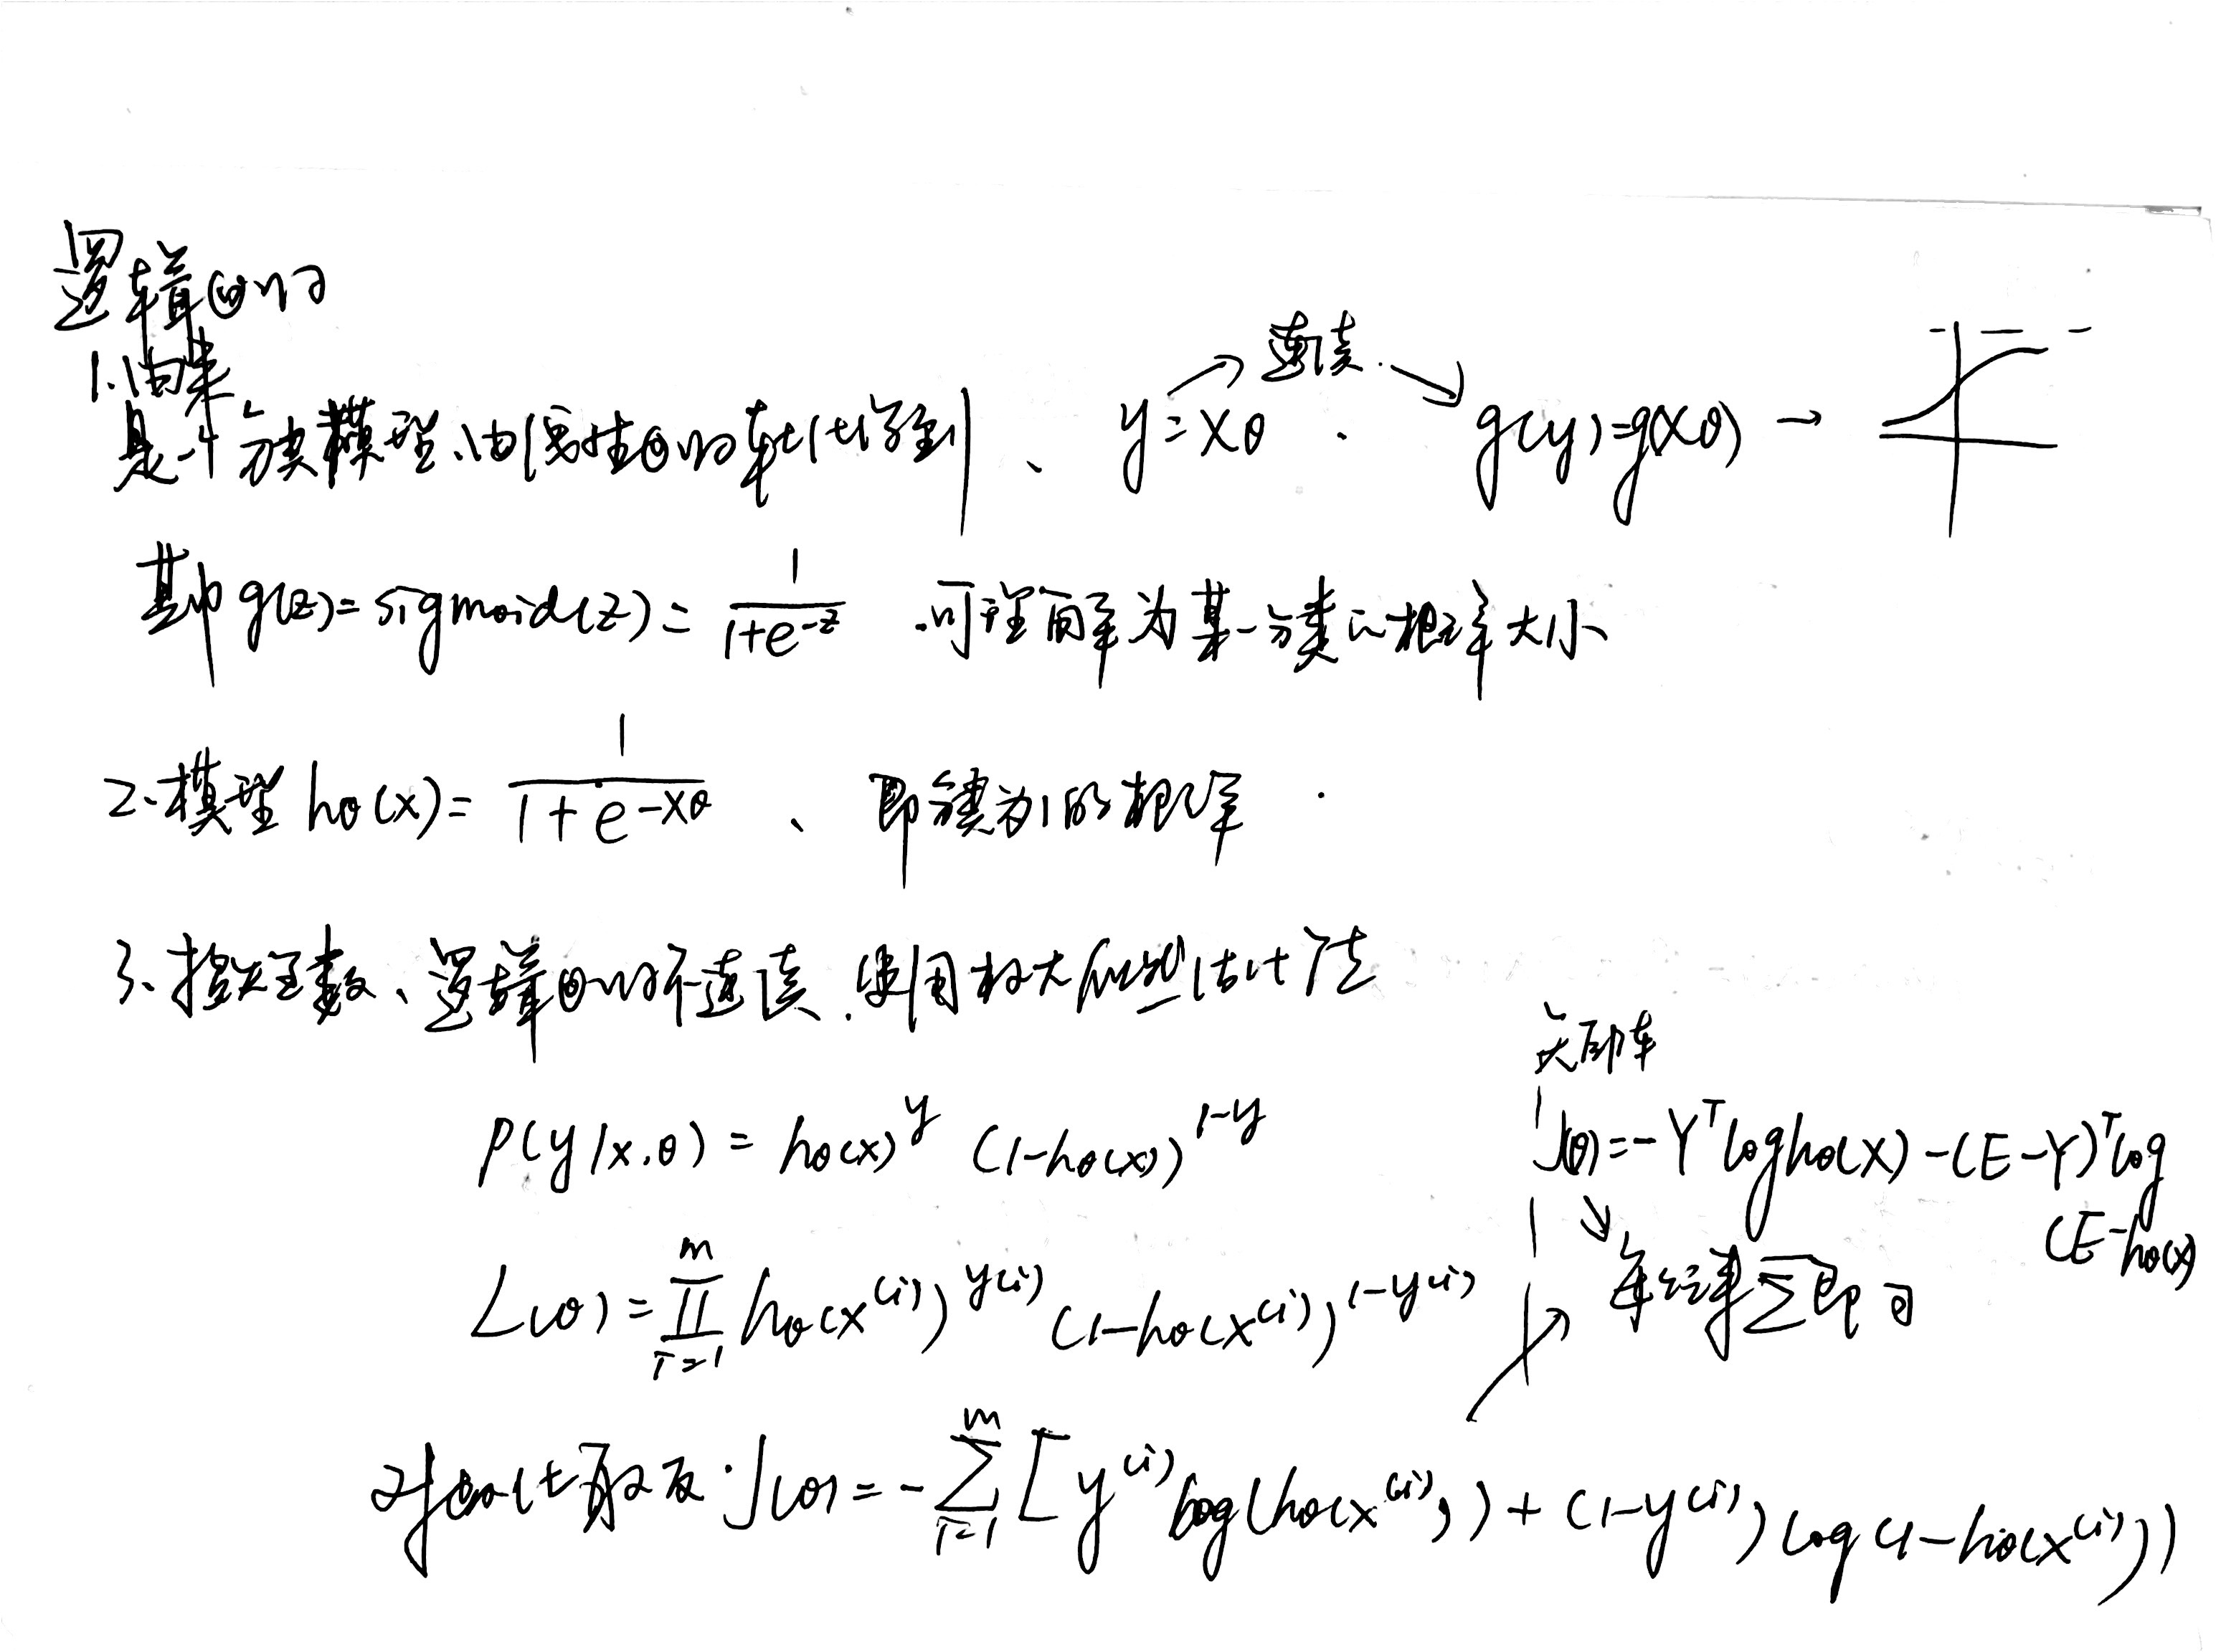 逻辑回归
1.由来
是一个分类模型、由线性回归转化得到、 y=Xθ → 连续. → g(y)=g(Xθ) →
其中 g(z)=sigmoid(z)= 1/(1+e^-z) .可理解为某一分类的概率大小
2.模型 hθ(x)= 1/(1+e^-Xθ) 、 即分类为1的概率
3.损失函数、逻辑回归不连续.使用极大似然估计法
P(y|x.θ) = hθ(x)^y (1-hθ(x))^1-y
L(θ)=∏_{i=1}^m hθ(x^(i))^y(i) (1-hθ(x^(i)))^1-y(i)
对数化取反.J(θ)=-∑_{i=1}^m [y^(i) log(hθ(x^(i)))+(1-y^(i)) log(1-hθ(x^(i)))
J(θ)=-Y^T log hθ(X)-(E-Y)^T log
(E-hθ(x)
∑即可